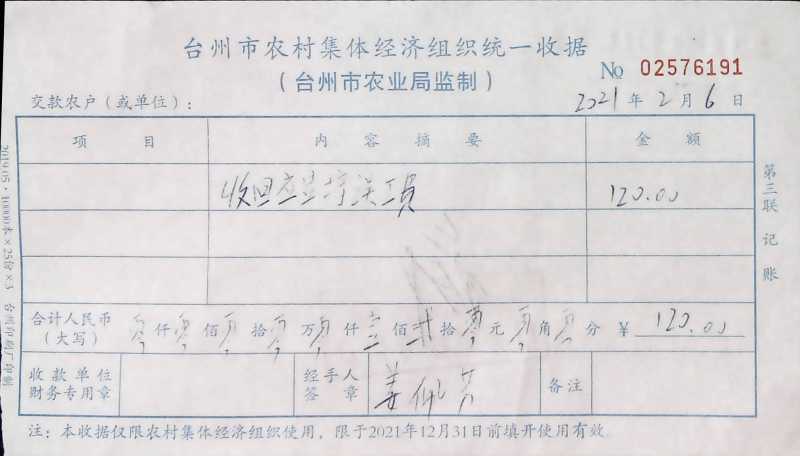 台州市农村集体经济组织统一收据
(台州市农业局监制)
№ 02576191
交款农户(或单位): 2021年2月6日
项目 内容摘要 金额
收回 误工费 120.00
第三联 记账
合计人民币(大写) 零仟零佰零拾零万零仟 佰贰拾零元零角零分 ¥ 120.00
收款单位财务专用章 经手人签章 姜 备注
注:本收据仅限农村集体经济组织使用,限于2021年12月31日前填开使用有效.
2019.05·10000本×25份×3 台州印刷厂印制